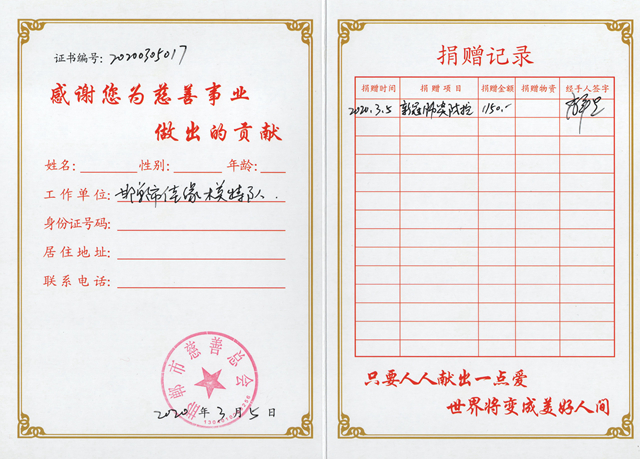 证书编号: 20200305017
感谢您为慈善事业
做出的贡献
姓名: 性别: 年龄:
工作单位: 邯郸市佳缘模特队.
身份证号码:
居住地址:
联系电话:
邯郸市慈善总会
2020年3月5日
捐赠记录
捐赠时间 捐赠项目 捐赠金额 捐赠物资 经手人签字
2020.3.5 新冠肺炎防控 1150.-
只要人人献出一点爱
世界将变成美好人间